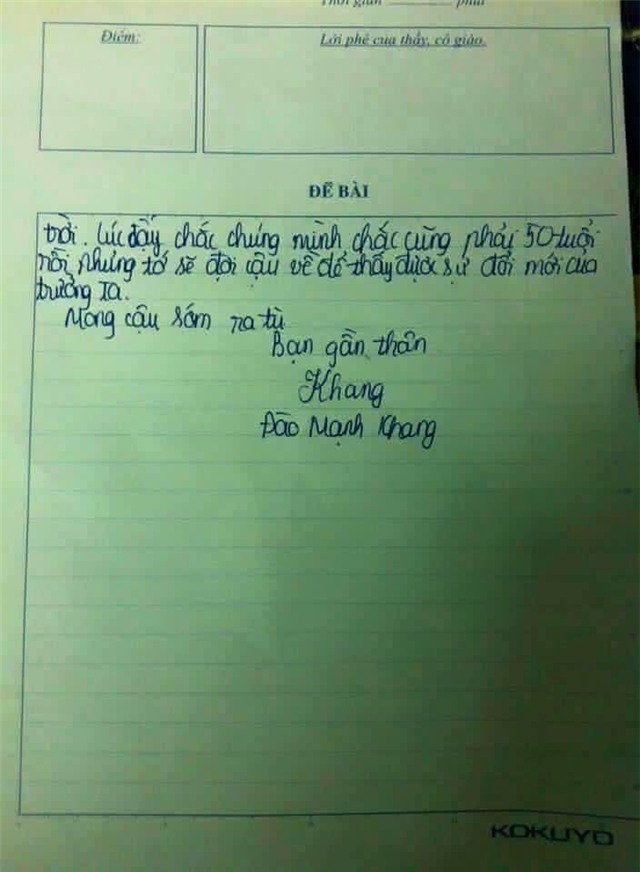 Thời gian ............ phút
Điểm:
Lời phê của thầy, cô giáo.
ĐỀ BÀI
trời. Lúc đấy chắc chúng mình chắc cũng phải 50 tuổi
rồi nhưng tớ sẽ đợi cậu về để thấy được sự đổi mới của
trường ta.
Mong cậu sớm ra tù
Bạn gần thân
Khang
Đào Mạnh Khang
KOKUYO